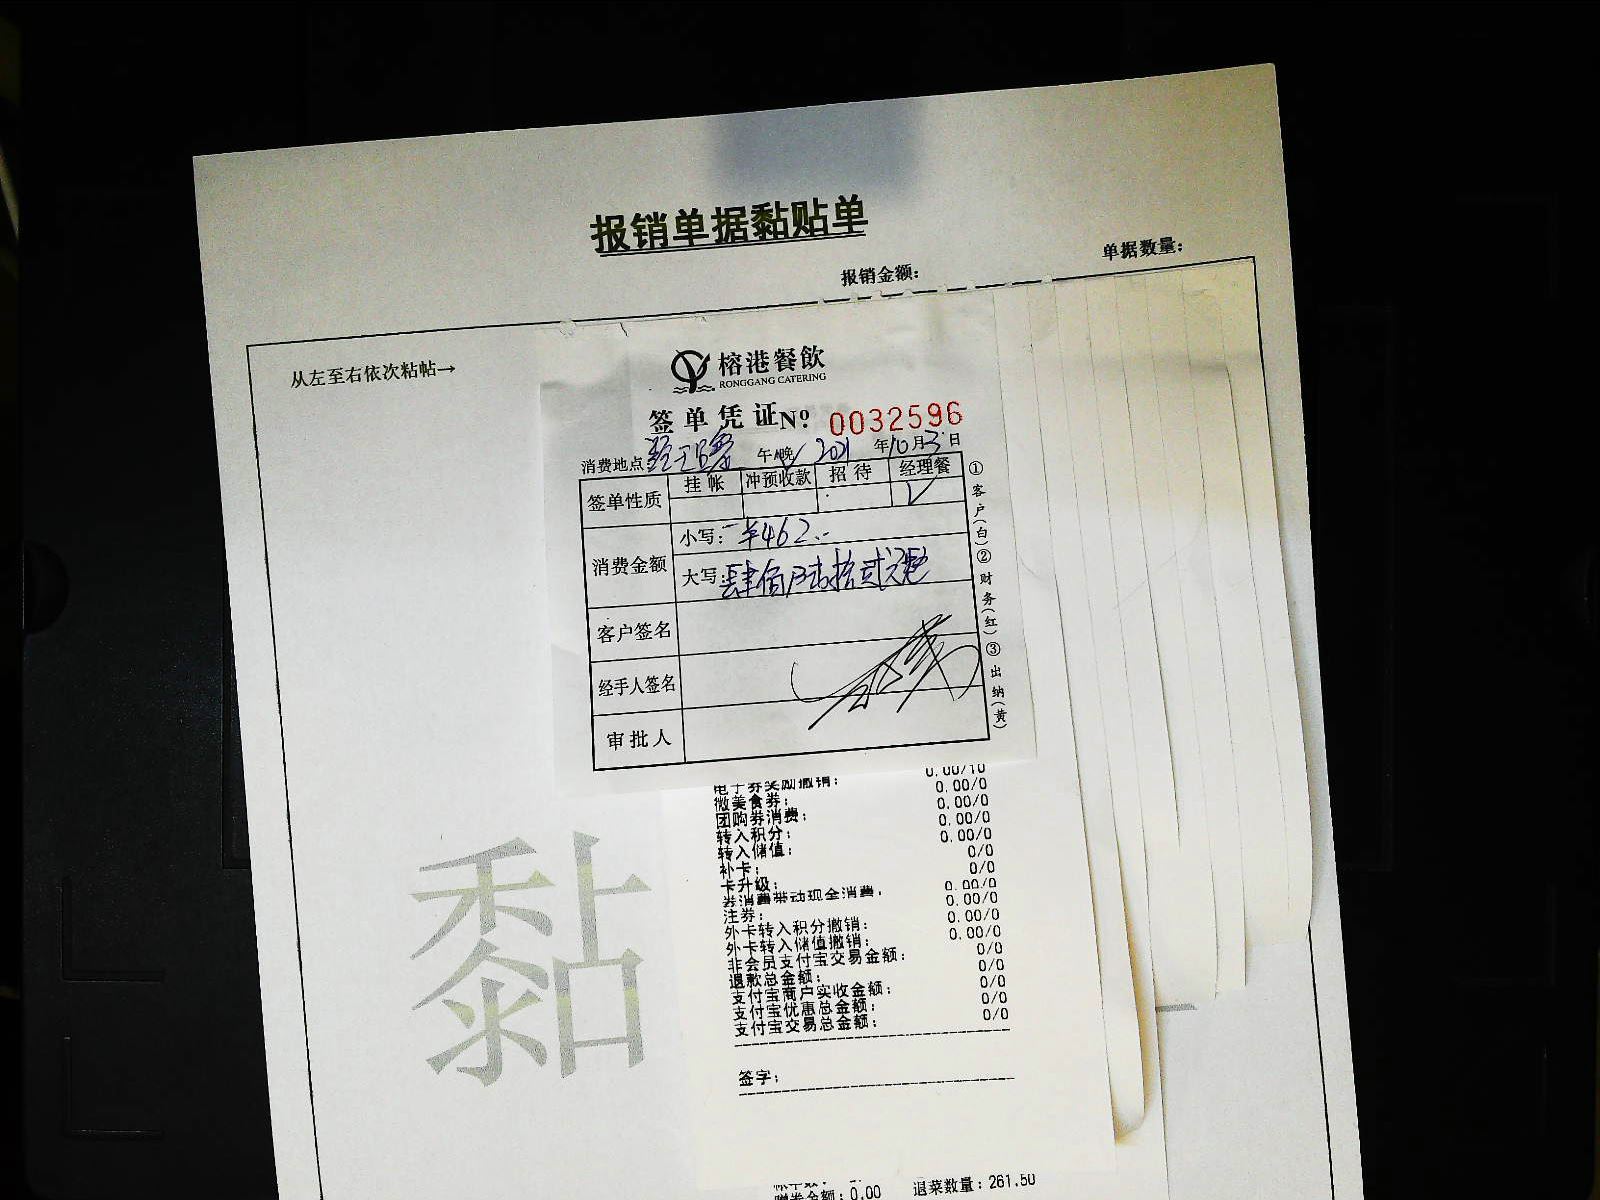 报销单据黏贴单
报销金额：
单据数量：
从左至右依次粘帖→
榕港餐飲
RONGGANG CATERING
签单凭证№ 0032596
消费地点 午晚√ 2021年10月3日
签单性质 挂帐 冲预收款 招待 经理餐
√
消费金额 小写：¥462
大写：肆佰陆拾贰元
客户签名
经手人签名
审批人
①客户（白）②财务（红）③出纳（黄）
电子券奖励撤销： 0.00/10
微美食券： 0.00/0
团购券消费： 0.00/0
转入积分： 0.00/0
转入储值： 0.00/0
补卡： 0/0
卡升级： 0/0
券消费带动现金消费： 0.00/0
注券： 0.00/0
外卡转入积分撤销： 0.00/0
外卡转入储值撤销： 0.00/0
非会员支付宝交易金额： 0/0
退款总金额： 0/0
支付宝商户实收金额： 0/0
支付宝优惠总金额： 0/0
支付宝交易总金额： 0/0
签字：
黏
0.00 退菜数量：261.50